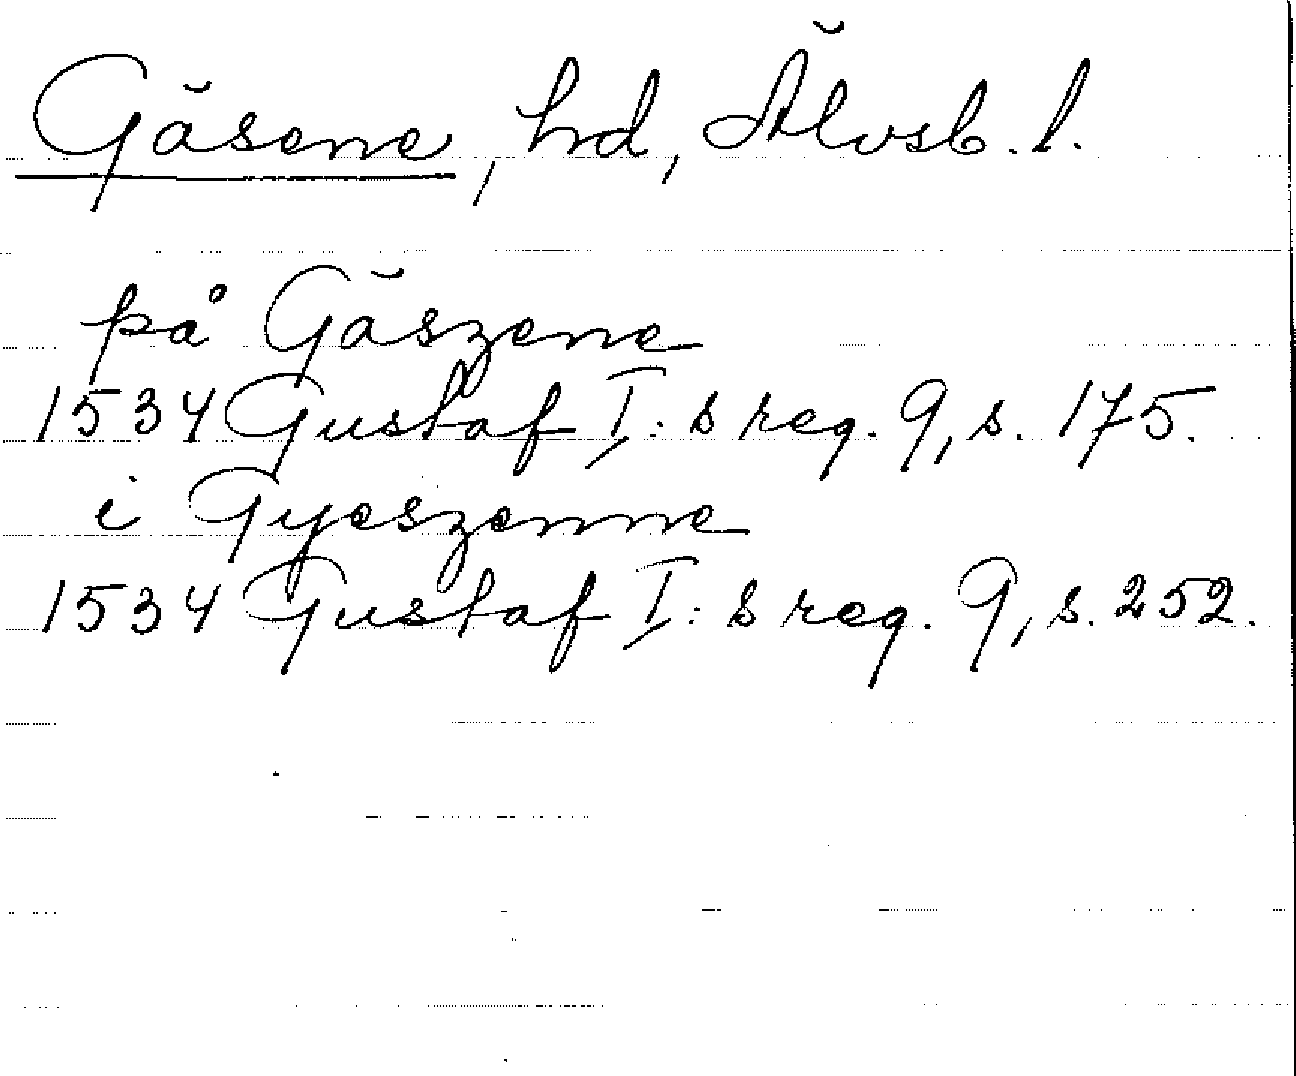 Gäsene, hd, Älvsb. l.
på Gäszene
1534 Gustaf I: s reg. 9, s. 175.
i Gyeszenne
1534 Gustaf I: s reg. 9, s. 252.